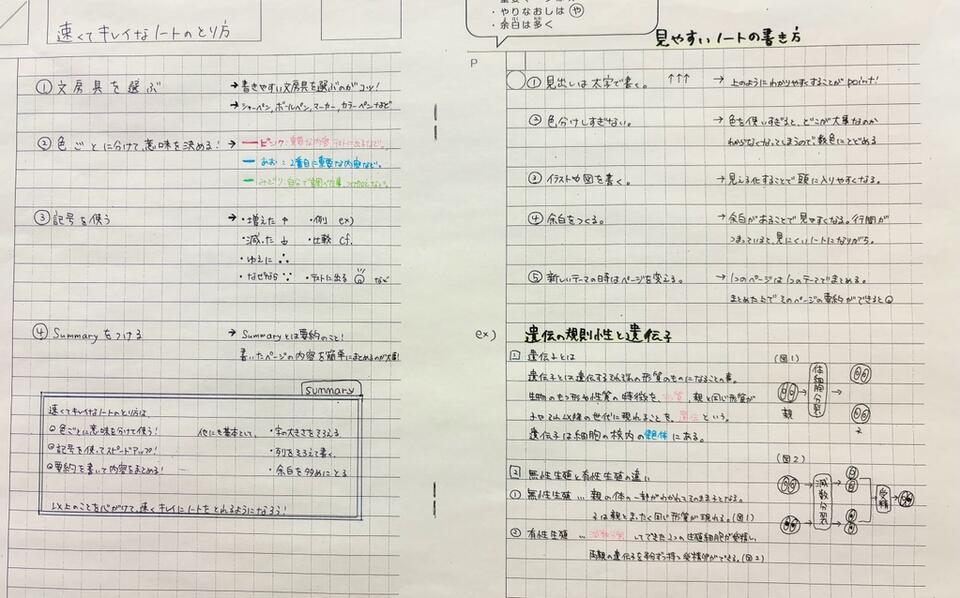 速くてキレイなノートのとり方
① 文房具を選ぶ
→ 書きやすい文房具を選ぶのがコツ!
→ シャーペン,ボールペン,マーカー,カラーペンなど
② 色ごとに分けて、意味を決める!
→ ー ピンク:重要な内容 テストに出るなど。
ー あお:2番目に重要な内容など。
ー みどり:自分で調べた事
③ 記号を使う
→ ・増えた ↑ ・例 ex)
・減った ↓ ・比較 cf.
・ゆえに ∴
・なぜなら ∵ ・テストに出る など
④ Summaryをつける
→ Summaryとは要約のこと!
書いたページの内容を簡単にまとめるのが大事!
summary
速くてキレイなノートのとり方は、
色ごとに意味を分けて使う!
記号を使ってスピードアップ!
要約を書いて内容をまとめる!
他にも基本として、
・字の大きさをそろえる
・列をそろえて書く、
・余白を多めにとる
以上のことを心がけて、速くキレイにノートをとれるようになろう!
・やりなおしは や
・余白は多く
見やすいノートの書き方
P
① 見出しは太字で書く。 ↑↑↑
→ 上のようにわかりやすくすることがpoint!
② 色分けしすぎない。
→ 色を使いすぎると、どこが大事なのか
わからなくなってしまうので、数色にとどめる
③ イラストや図を書く。
→ 見える化することで頭に入りやすくなる。
④ 余白をつくる。
→ 余白があることで見やすくなる。行間が
つまっていると、見にくいノートになりがち。
⑤ 新しいテーマの時はページを変える。
→ 1つのページは1つのテーマでまとめる。
まとめた上でそのページの要約ができると
ex)
遺伝の規則性と遺伝子
1 遺伝子とは
遺伝子とは遺伝するそれぞれの形質のもとになることの事。
生物のもつ形や性質の特徴を 形質 、親と同じ形質が
子やそれ以降の世代に現れることを 遺伝 という。
遺伝子は細胞の核内の染色体にある。
(図1)
親
体細胞分裂
2
2 無性生殖と有性生殖の違い
① 無性生殖 … 親の体の一部がわかれてそのまま子となる。
子は親とまったく同じ形質が現れる。(図1)
② 有性生殖 … 減数分裂 してできた2つの生殖細胞が受精し、
両親の遺伝子を半分ずつ持つ受精卵ができる。(図2)
(図2)
減数分裂
受精